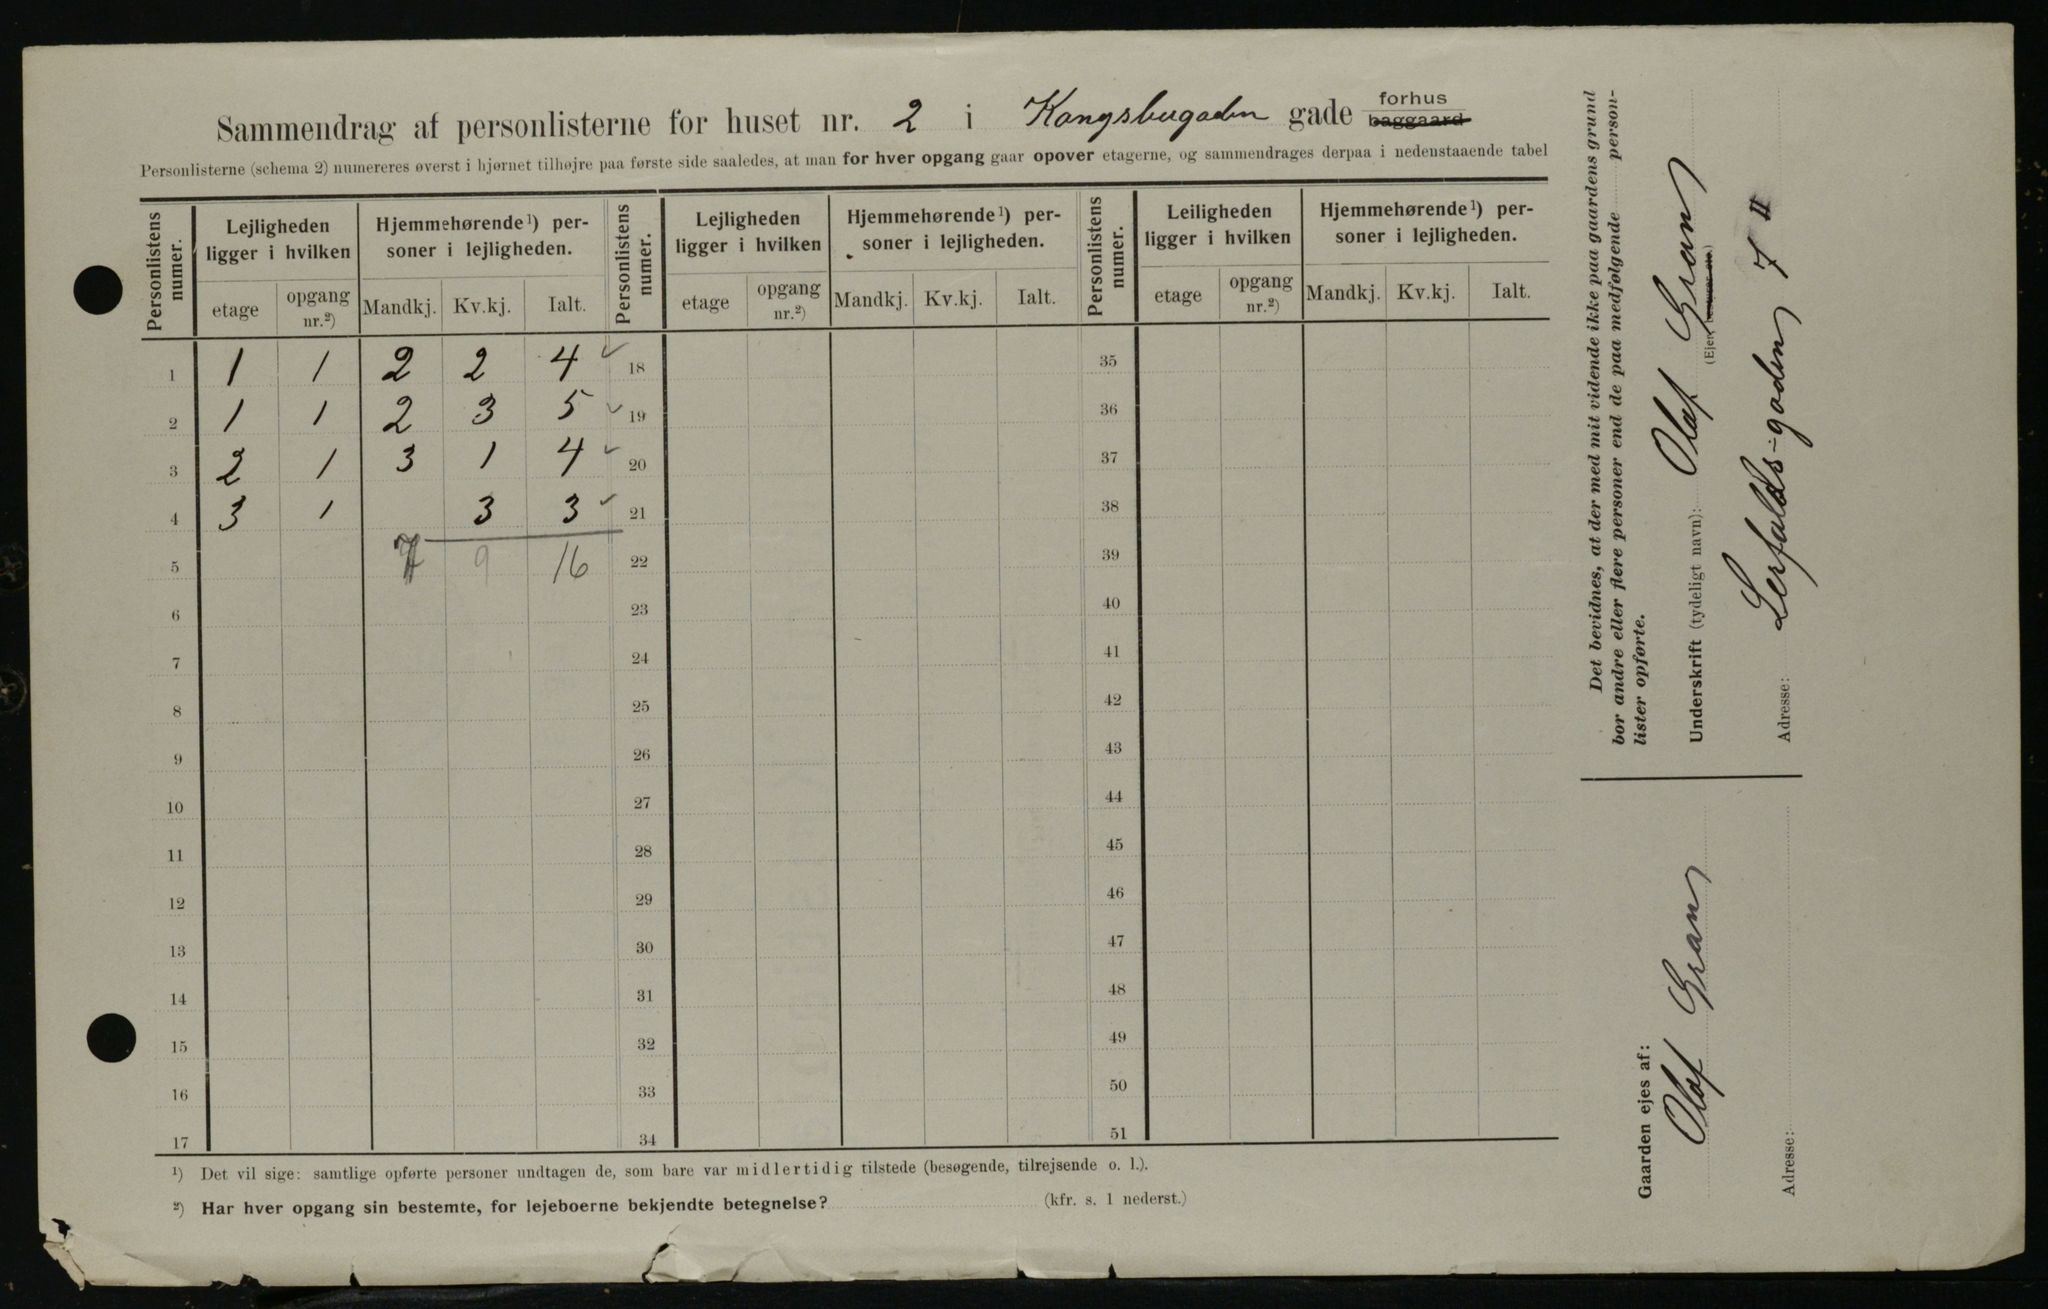 Sammendrag af personlisterne for huset nr. 2 i Kongsbergaden gade forhus baggaard
Personlisterne (schema 2) numereres øverst i hjørnet tilhøjre paa første side saaledes, at man for hver opgang gaar opover etagerne, og sammendrages derpaa i nedenstaaende tabel
Personlistens numer. Lejligheden ligger i hvilken Hjemmehørende¹) personer i lejligheden. Personlistens numer. Lejligheden ligger i hvilken Hjemmehørende¹) personer i lejligheden. Personlistens numer. Leiligheden ligger i hvilken Hjemmehørende¹) personer i lejligheden.
etage opgang nr.²) Mandkj. Kv.kj. Ialt. etage opgang nr.²) Mandkj. Kv.kj. Ialt. etage opgang nr.²) Mandkj. Kv.kj. Ialt.
1 1 1 2 2 4 ✓ 18 35
2 1 1 2 3 5 ✓ 19 36
3 2 1 3 1 4 ✓ 20 37
4 3 1 3 3 ✓ 21 38
5 7 9 16 22 39
6 23 40
7 24 41
8 25 42
9 26 43
10 27 44
11 28 45
12 29 46
13 30 47
14 31 48
15 32 49
16 33 50
17 34 51
¹) Det vil sige: samtlige opførte personer undtagen de, som bare var midlertidig tilstede (besøgende, tilrejsende o. l.).
²) Har hver opgang sin bestemte, for lejeboerne bekjendte betegnelse? (kfr. s. 1 nederst.)
Det bevidnes, at der med mit vidende ikke paa gaardens grund
bor andre eller flere personer end de paa medfølgende person-
lister opførte.
Underskrift (tydeligt navn): Olaf Gran
Adresse: Lerfalds-gaden 7 II
Gaarden ejes af:
Olaf Gran
Adresse: